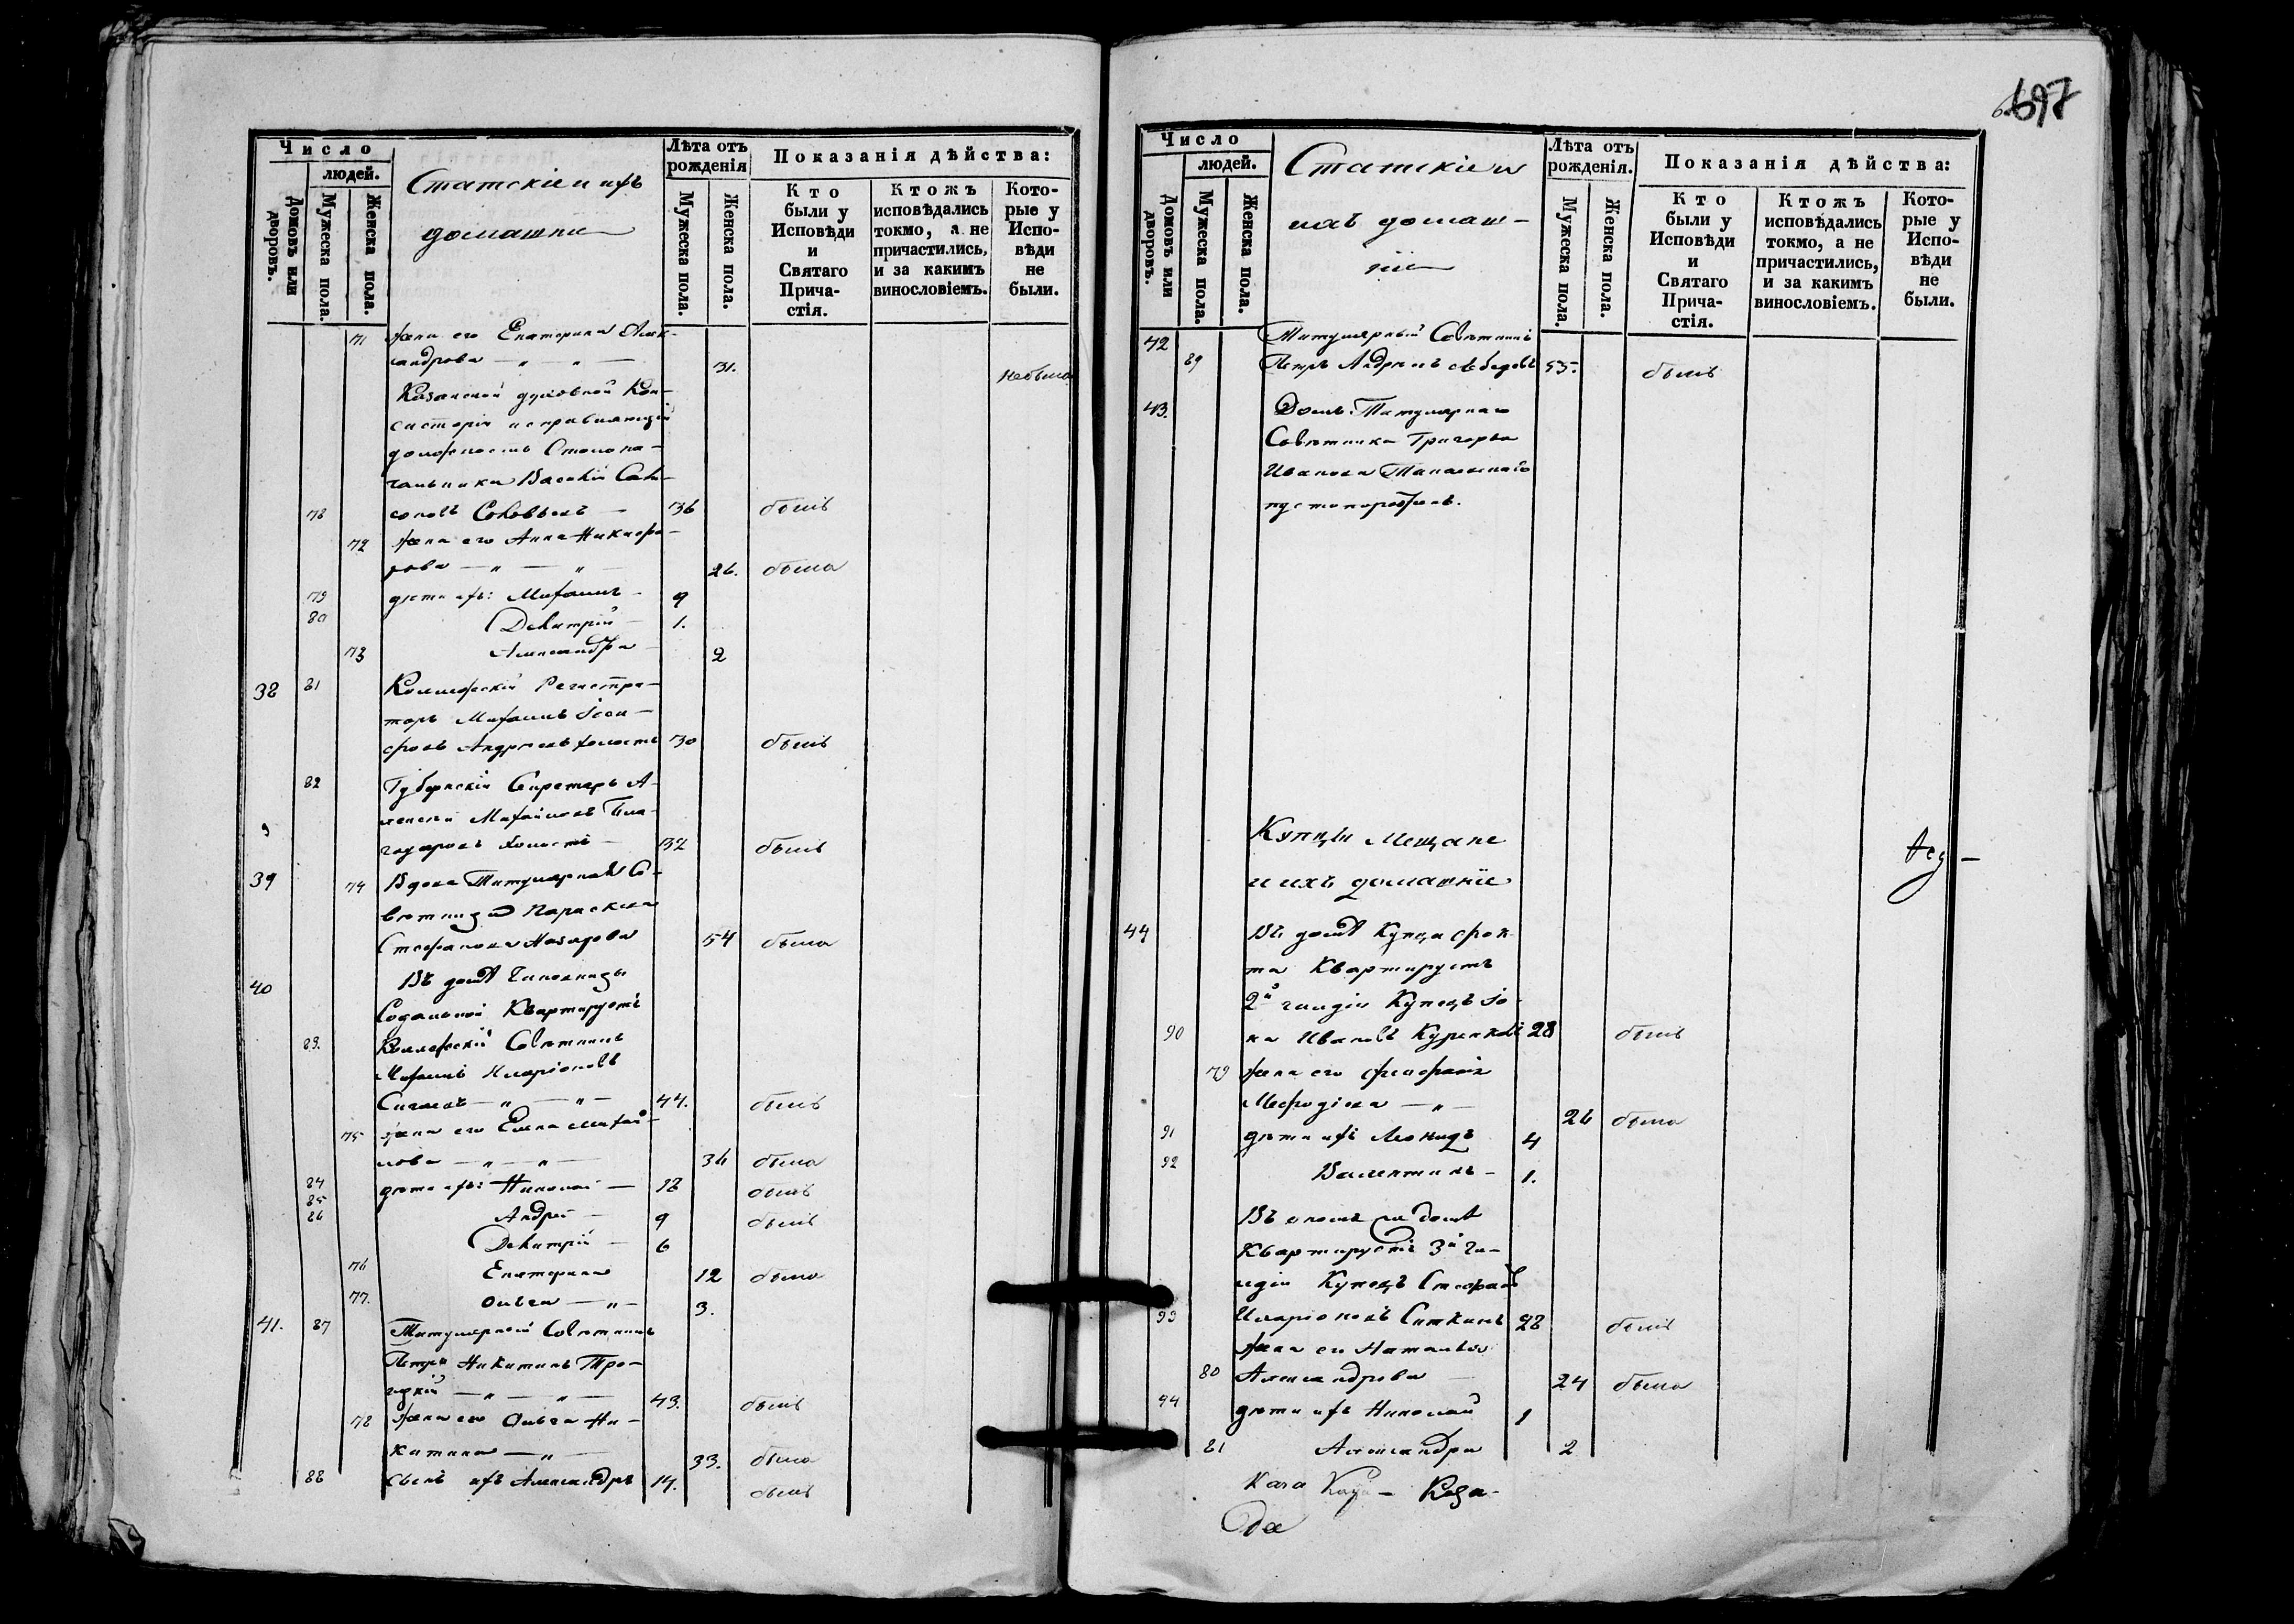 697
Число
людей.
Домовъ или дворовъ.
Мужеска пола.
Женска пола.
Статскіе и ихъ
домашніе
Лѣта отъ рожденія
Мужеска пола.
Женска пола.
Показанія дѣйства:
Кто были у Исповѣди и Святаго Прича-стія.
Ктожъ исповѣдались токмо, а не причастились, и за какимъ винословіемъ.
Кото-рые у Испо-вѣди не были.
71 жена его Екатерина Алек-
сандрова — „ — „ — 31. небыла
Казанской духовной Кон-
систоріи исправляющій
должность Столона-
чальника Василій
78 36 былъ
72 жена его Анна Никифо-
рова — „ — „ — 26. была
79 дѣти ихъ: Михаилъ — 9
80 Димитрій — 1.
73 Александра — 2
38 81 Коллежскій Регистра-
торъ Михаилъ Іоси-
фовъ Андреевъ холостъ 30 былъ
82 Губернскій Секретарь А-
лексѣй Михайловъ Бла-
годаровъ холостъ — 32 былъ
39 74 Вдова Титулярная Со-
вѣтница Параскева
Стефанова Назарова 54 была
40 Въ домѣ Чиновницы
Квартируетъ
83. Коллежскій Совѣтникъ
Михаилъ Иларіоновъ
— „ — „ — 44. былъ
75 жена его Елена Михай-
лова — „ — „ — 36 была
84 дѣти ихъ: Николай — 12 былъ
85 Андрей — 9 былъ
86 Димитрій — 6
76 Екатерина 12 была
77. Ольга — „ — 3.
41. 87 Титулярный Совѣтникъ
Петръ Никитинъ Тро-
ицкій — „ — „ — 43. былъ
78 жена его Ольга Ни-
китина — „ — 33. была
88 сынъ ихъ Александръ 14. былъ
Число
людей.
Домовъ или дворовъ.
Мужеска пола.
Женска пола.
Статскіе и
ихъ домаш-
ніе
Лѣта отъ рожденія.
Мужеска пола.
Женска пола.
Показанія дѣйства:
Кто были у Исповѣди и Святаго Прича-стія.
Ктожъ исповѣдались токмо, а не причастились, и за какимъ винословіемъ.
Кото-рые у Испо-вѣди не были.
42 Титулярный Совѣтникъ
89 Петръ Андреевъ Лебедевъ 53. былъ
43. Домъ Титулярнаго
Совѣтника Григорья
Иванова
пустопорожнъ.
Купцы Мещане
и ихъ домашніе
44 Въ домѣ Купца
Квартируетъ
2й гильдіи Купецъ Іо-
90 на Ивановъ 28 былъ
79 жена его
Меѳодіева — „ — 26 была
91 дѣти ихъ Леонидъ 4
92 Валентинъ — 1.
Въ ономъ же домѣ
Квартируетъ 3й Ги-
льдіи Купецъ Стефанъ
93 Иларіоновъ Ситкинъ 28 былъ
жена его Наталья
80 Александрова — 24 была
94 дѣти ихъ Николай 1
81 Александра 2